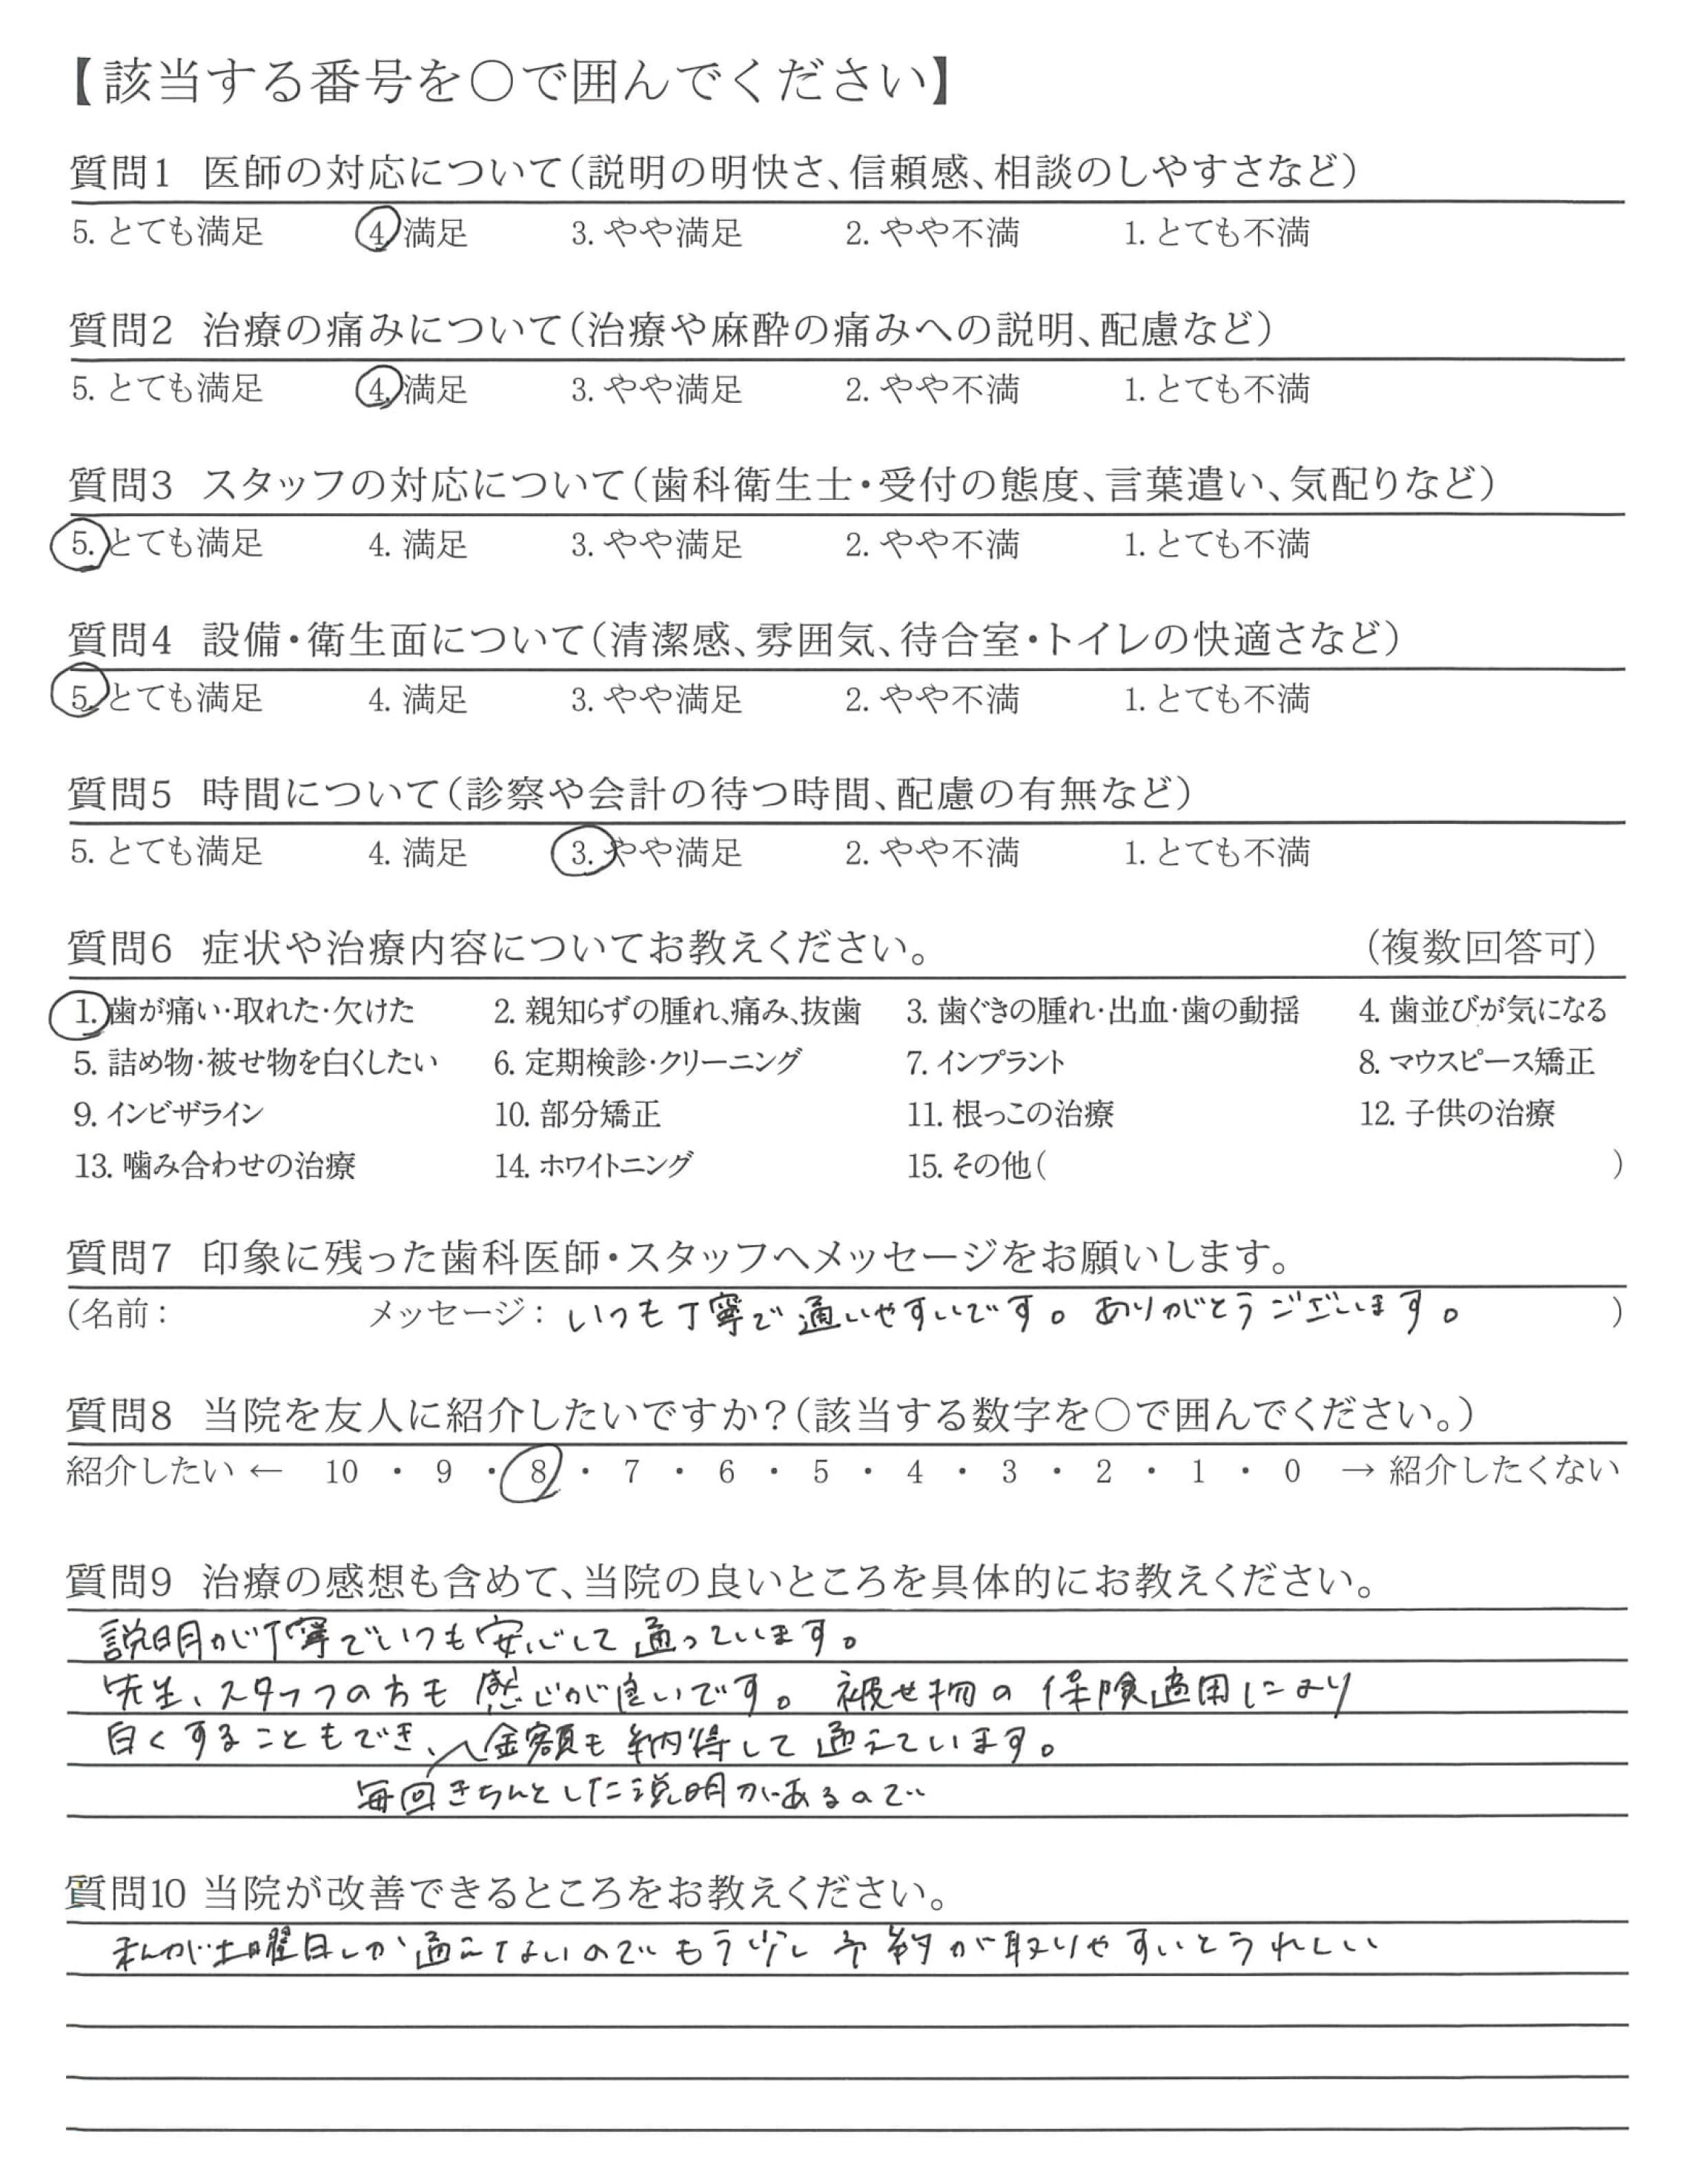 【該当する番号を○で囲んでください】
質問1 医師の対応について(説明の明快さ、信頼感、相談のしやすさなど)
5. とても満足 4. 満足 3. やや満足 2. やや不満 1. とても不満
質問2 治療の痛みについて(治療や麻酔の痛みへの説明、配慮など)
5. とても満足 4. 満足 3. やや満足 2. やや不満 1. とても不満
質問3 スタッフの対応について(歯科衛生士・受付の態度、言葉遣い、気配りなど)
5. とても満足 4. 満足 3. やや満足 2. やや不満 1. とても不満
質問4 設備・衛生面について(清潔感、雰囲気、待合室・トイレの快適さなど)
5. とても満足 4. 満足 3. やや満足 2. やや不満 1. とても不満
質問5 時間について(診察や会計の待つ時間、配慮の有無など)
5. とても満足 4. 満足 3. やや満足 2. やや不満 1. とても不満
質問6 症状や治療内容についてお教えください。 (複数回答可)
1. 歯が痛い・取れた・欠けた 2. 親知らずの腫れ、痛み、抜歯 3. 歯ぐきの腫れ・出血・歯の動揺 4. 歯並びが気になる
5. 詰め物・被せ物を白くしたい 6. 定期検診・クリーニング 7. インプラント 8. マウスピース矯正
9. インビザライン 10. 部分矯正 11. 根っこの治療 12. 子供の治療
13. 噛み合わせの治療 14. ホワイトニング 15. その他( )
質問7 印象に残った歯科医師・スタッフへメッセージをお願いします。
(名前: メッセージ: いつも丁寧で通いやすいです。ありがとうございます。 )
質問8 当院を友人に紹介したいですか?(該当する数字を○で囲んでください。)
紹介したい ← 10 ・ 9 ・ 8 ・ 7 ・ 6 ・ 5 ・ 4 ・ 3 ・ 2 ・ 1 ・ 0 → 紹介したくない
質問9 治療の感想も含めて、当院の良いところを具体的にお教えください。
説明が丁寧でいつも安心して通っています。
先生、スタッフの方も感じが良いです。被せ物の保険適用により
白くすることもでき、金額も納得して通えています。
毎回きちんとした説明があるので
質問10 当院が改善できるところをお教えください。
土曜日しか通えてないのでもう少し予約が取りやすいとうれしい